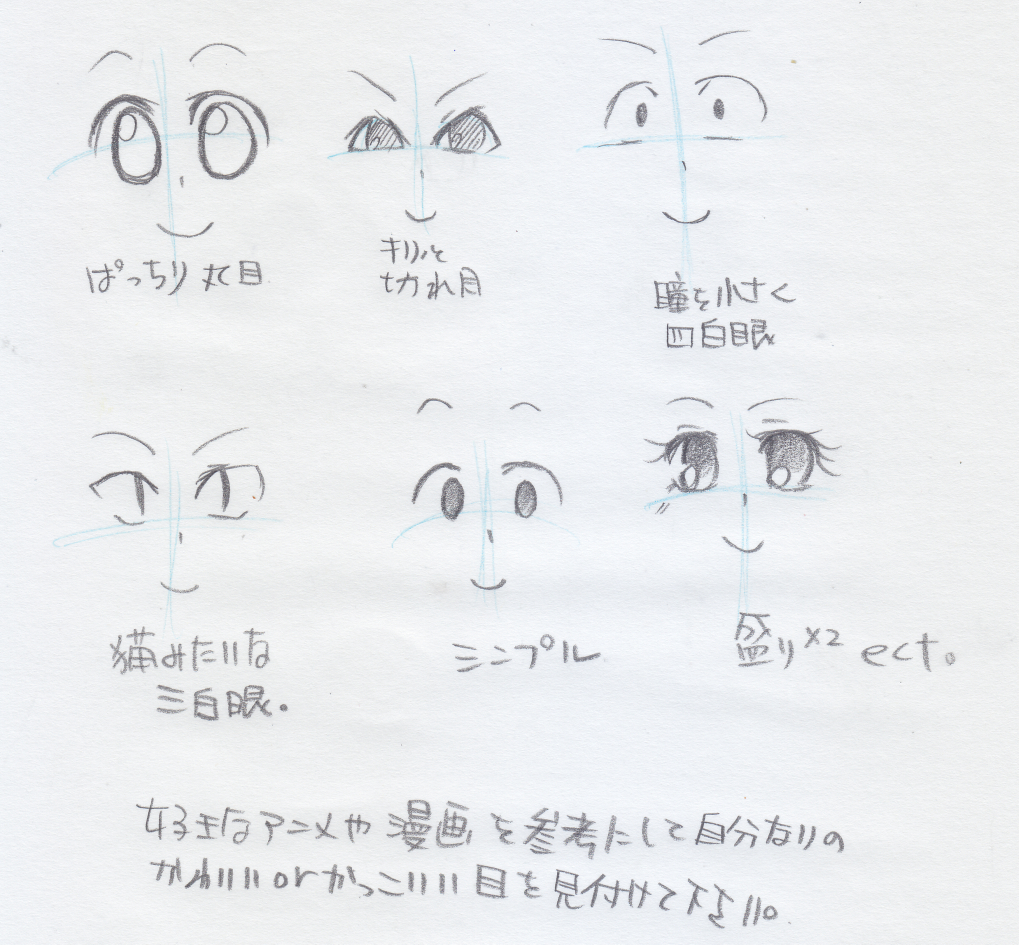 ぱっちり丸目
キリッと
切れ目
瞳を小さく
四白眼
猫みたいな
三白眼。
シンプル
盛り×2 ect。
好きなアニメや漫画を参考にして自分なりの
かわいいorかっこいい目を見付けて下さい。